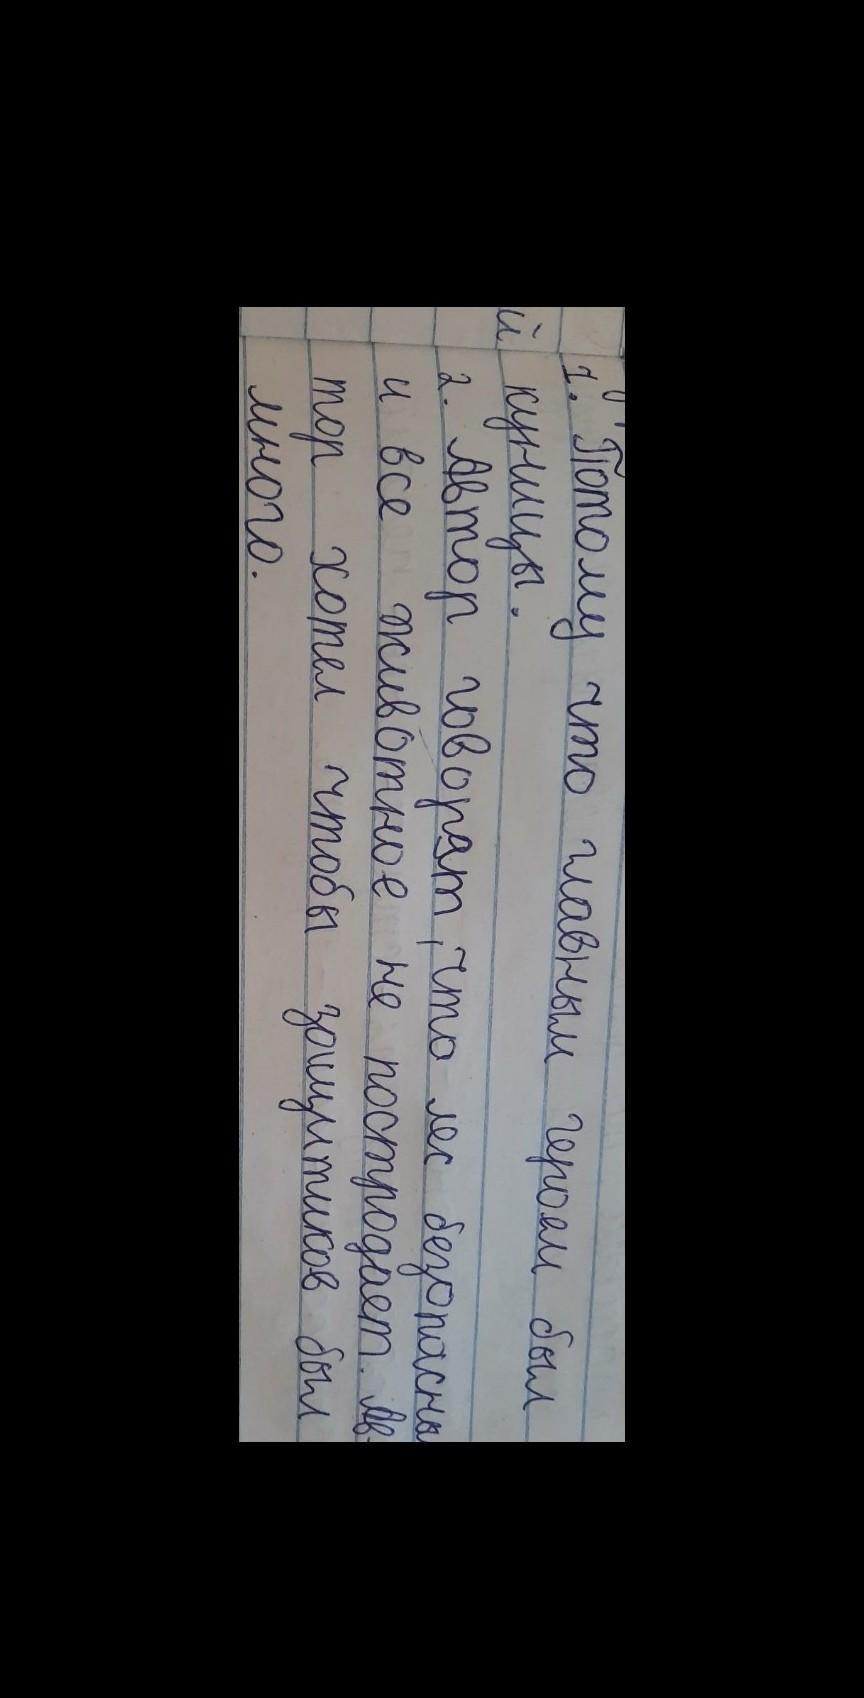 й
1. Потому что главным героем был
куницы.
2. Автор говорят, что лес безопасны
и все животное не постродает. Ав-
тор хотел чтобы защитиков был
много.